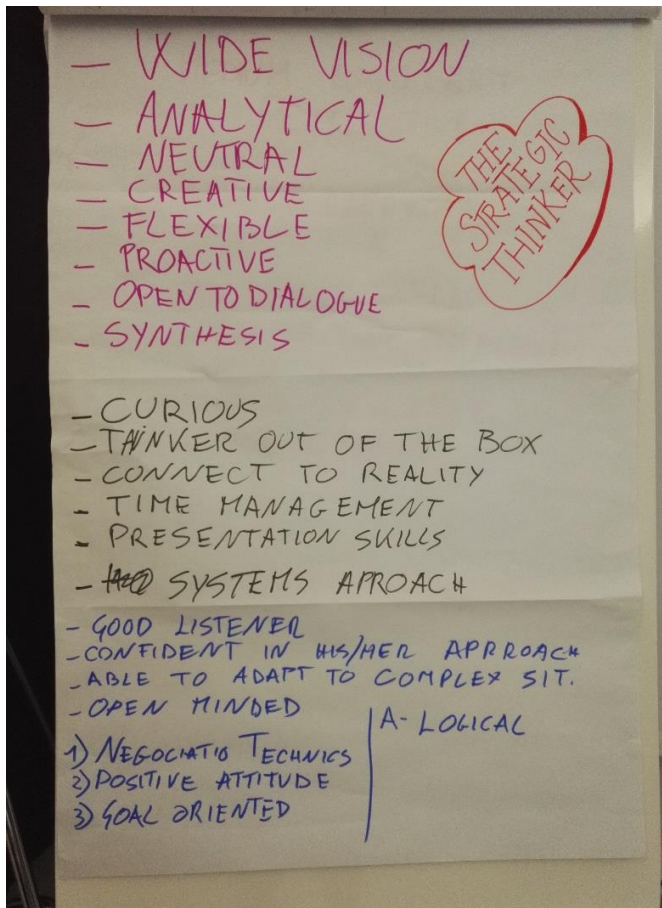 - WIDE VISION
- ANALYTICAL
- NEUTRAL
- CREATIVE
- FLEXIBLE
- PROACTIVE
- OPEN TO DIALOGUE
- SYNTHESIS
THE
STRATEGIC
THINKER
- CURIOUS
- THINKER OUT OF THE BOX
- CONNECT TO REALITY
- TIME MANAGEMENT
- PRESENTATION SKILLS
- SYSTEMS APROACH
- GOOD LISTENER
- CONFIDENT IN HIS/HER APPROACH
- ABLE TO ADAPT TO COMPLEX SIT.
- OPEN MINDED
1) NEGOCIATIO TECHNICS
2) POSITIVE ATTITUDE
3) GOAL ORIENTED
A- LOGICAL